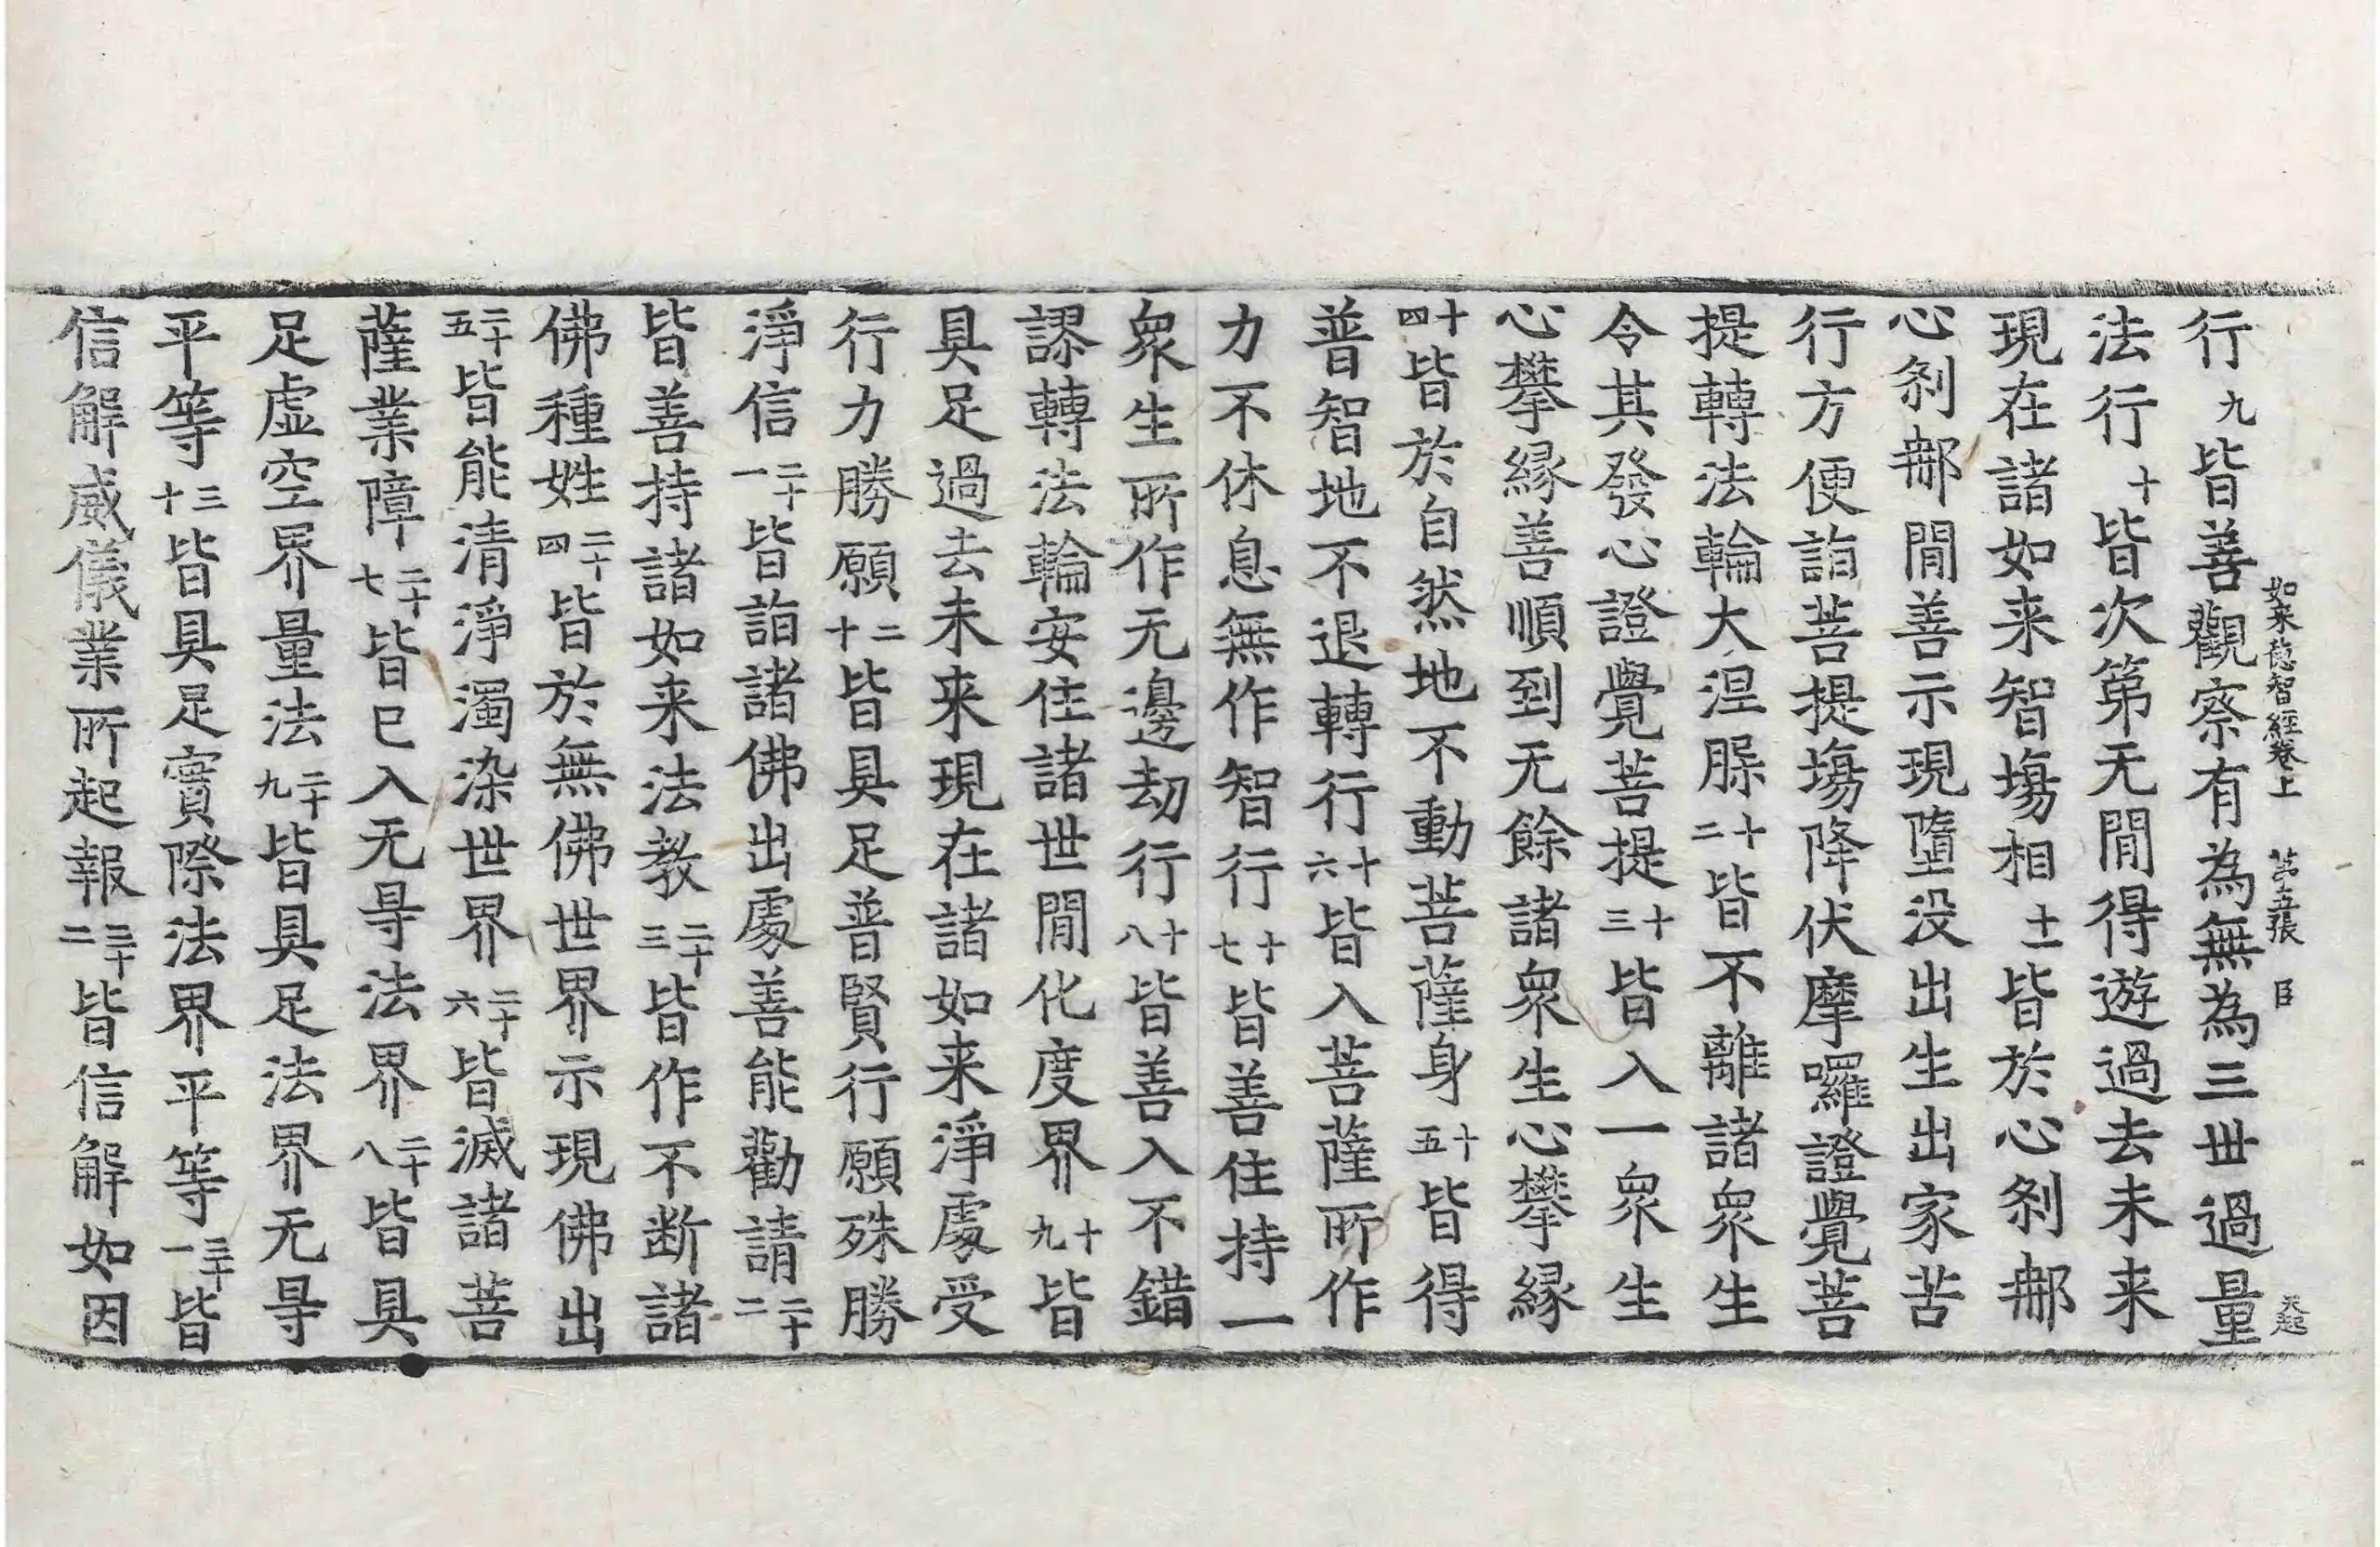 如来德智經卷上 第五張 臣 天起
行九皆善觀察有為無為三世過量
法行十皆次第无間得遊過去未来
現在諸如来智場相十一皆於心刹郍
心刹郍間善示現墮没出生出家苦
行方便詣菩提場降伏摩囉證覺菩
提轉法輪大涅脲十二皆不離諸衆生
令其發心證覺菩提十三皆入一衆生
心攀緣善順到无餘諸衆生心攀緣
十四皆於自然地不動菩薩身十五皆得
普智地不退轉行十六皆入菩薩所作
力不休息無作智行十七皆善住持一
衆生所作无邊劫行十八皆善入不錯
謬轉法輪安住諸世間化度界十九皆
具足過去未来現在諸如来淨處受
行力勝願二十皆具足普賢行願殊勝
淨信二十一皆詣諸佛出處善能勸請二十二
皆善持諸如来法教二十三皆作不断諸
佛種姓二十四皆於無佛世界示現佛出
二十五皆能清淨濁染世界二十六皆滅諸菩
薩業障二十七皆已入无㝵法界二十八皆具
足虚空界量法二十九皆具足法界无㝵
平等三十皆具足實際法界平等三十一皆
信解威儀業所起報三十二皆信解如因